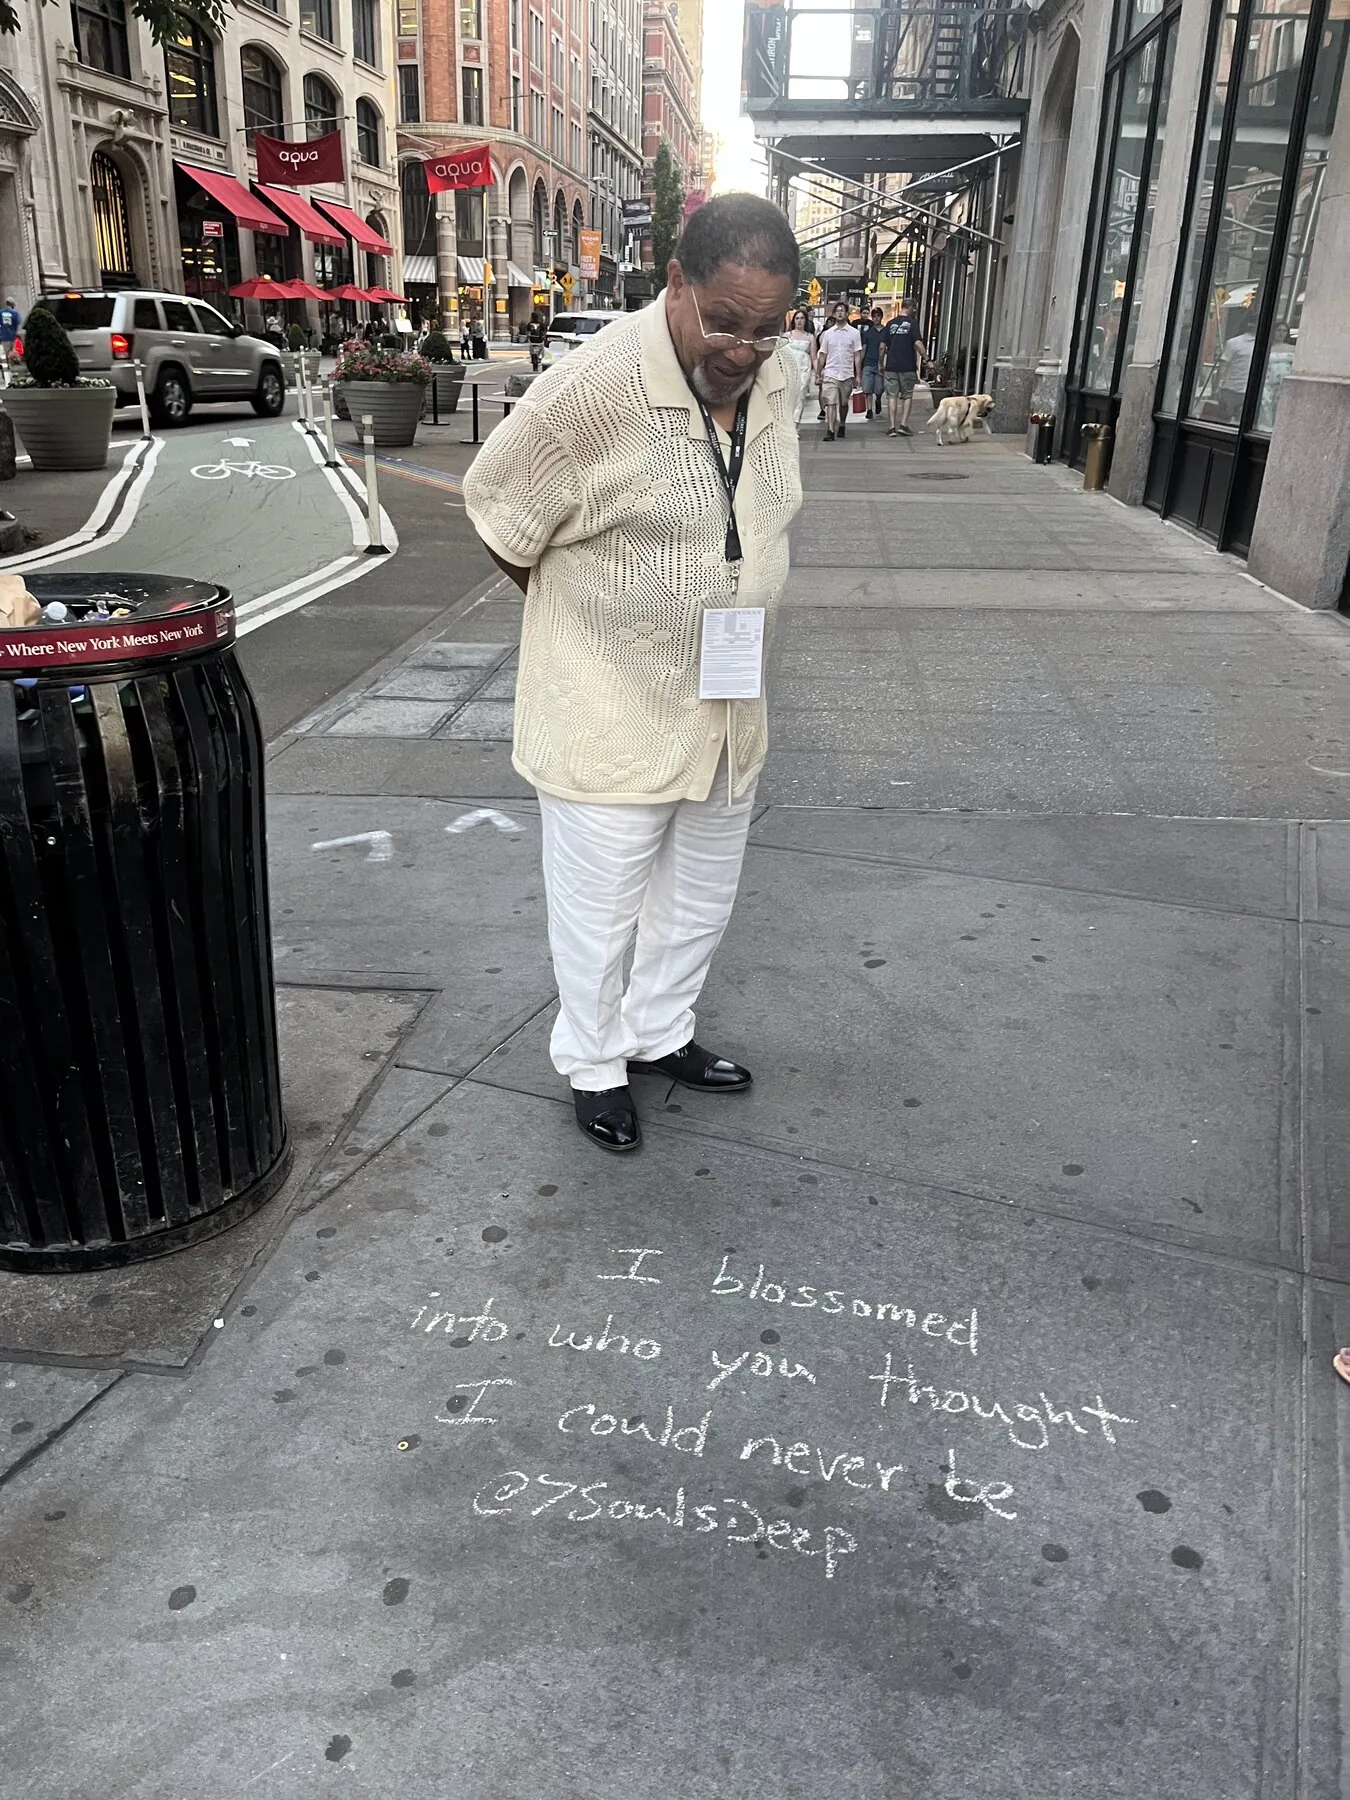 aqua
aqua
Where New York Meets New York
I blossomed
into who you thought
I could never be
@7SoulsDeep